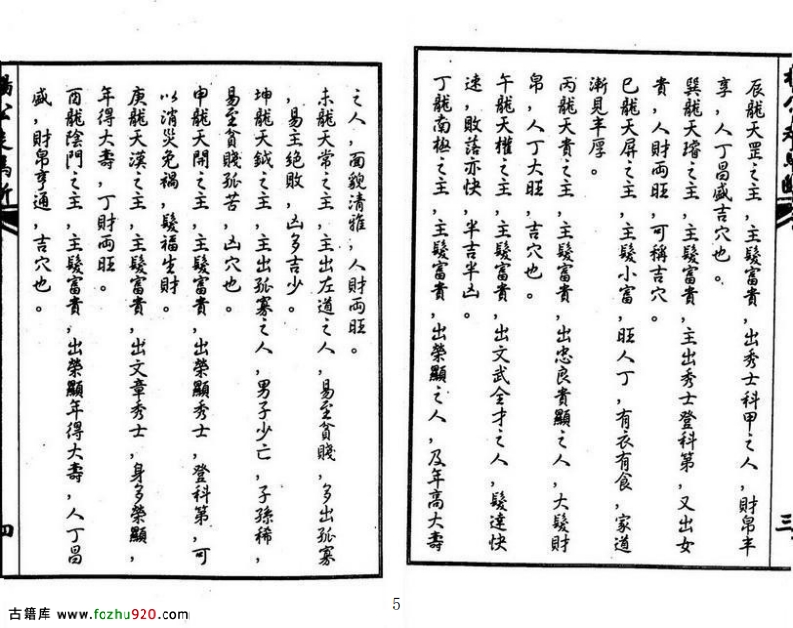 辰龍天罡之主,主髮富貴,出秀士科甲之人,財帛丰
享,人丁昌盛吉穴也。
巽龍天璿之主,主髮富貴,主出秀士登科第,又出女
貴,人財両旺,可稱吉穴。
巳龍天屏之主,主髮小富,旺人丁,有衣有食,家道
漸見丰厚。
丙龍天貴之主,主髮富貴,出忠良貴顯之人,大髮財
帛,人丁大旺,吉穴也。
午龍天權之主,主髮富貴,出文武全才之人,髮達快
速,敗落亦快,半吉半凶。
丁龍南極之主,主髮富貴,出榮顯之人,及年高大壽
三
之人,面貌清雅,人財両旺。
未龍天常之主,主出左道之人,易至貧賤,多出孤寡
,易主絕敗,凶多吉少。
坤龍天鉞之主,主出孤寡之人,男子少亡,子孫稀,
易至貧賤孤苦,凶穴也。
申龍天關之主,主髮富貴,出榮顯秀士,登科第,可
以消災免禍,髮福生財。
庚龍天漢之主,主髮富貴,出文章秀士,身多榮顯,
年得大壽,丁財両旺。
酉龍陰門之主,主髮富貴,出榮顯年得大壽,人丁昌
盛,財帛亨通,吉穴也。
四
古籍库 www.fozhu920.com
5